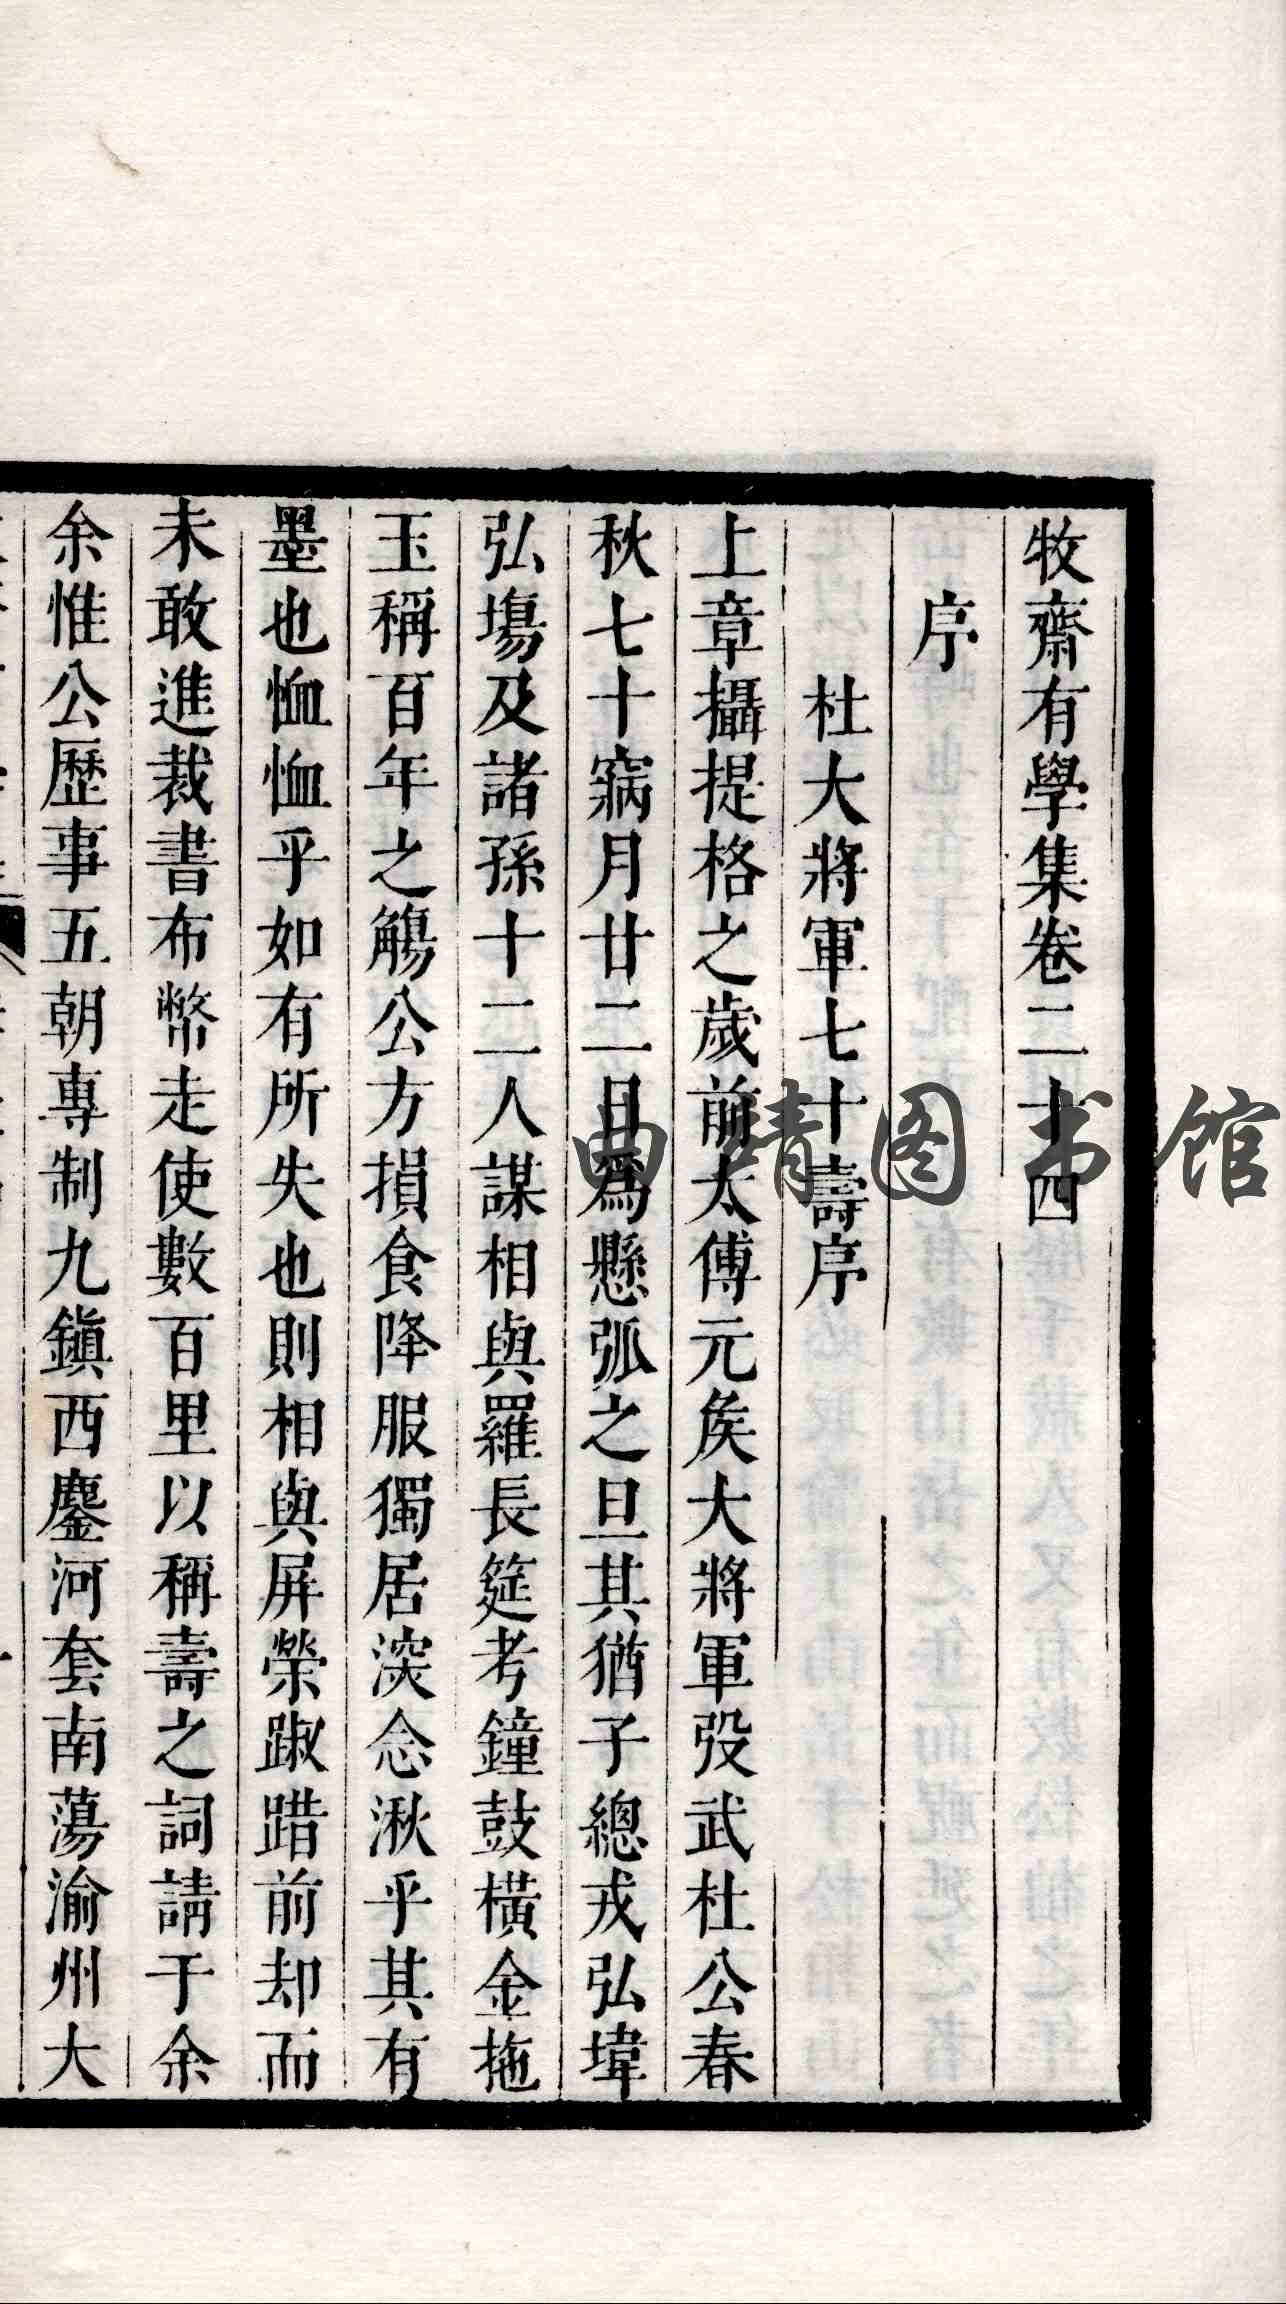 牧齋有學集卷二十四
序
杜大將軍七十壽序
上章攝提格之歲前太傅元侯大將軍弢武杜公春
秋七十寎月廿二日爲懸弧之旦其猶子總戎弘㙔
弘塲及諸孫十二人謀相與羅長筵考鐘鼓橫金拖
玉稱百年之觴公方損食降服獨居深念湫乎其有
墨也恤恤乎如有所失也則相與屏營踧踖前却而
未敢進裁書布幣走使數百里以稱壽之詞請于余
余惟公歷事五朝專制九鎮西鏖河套南蕩渝州大
曲靖图书馆